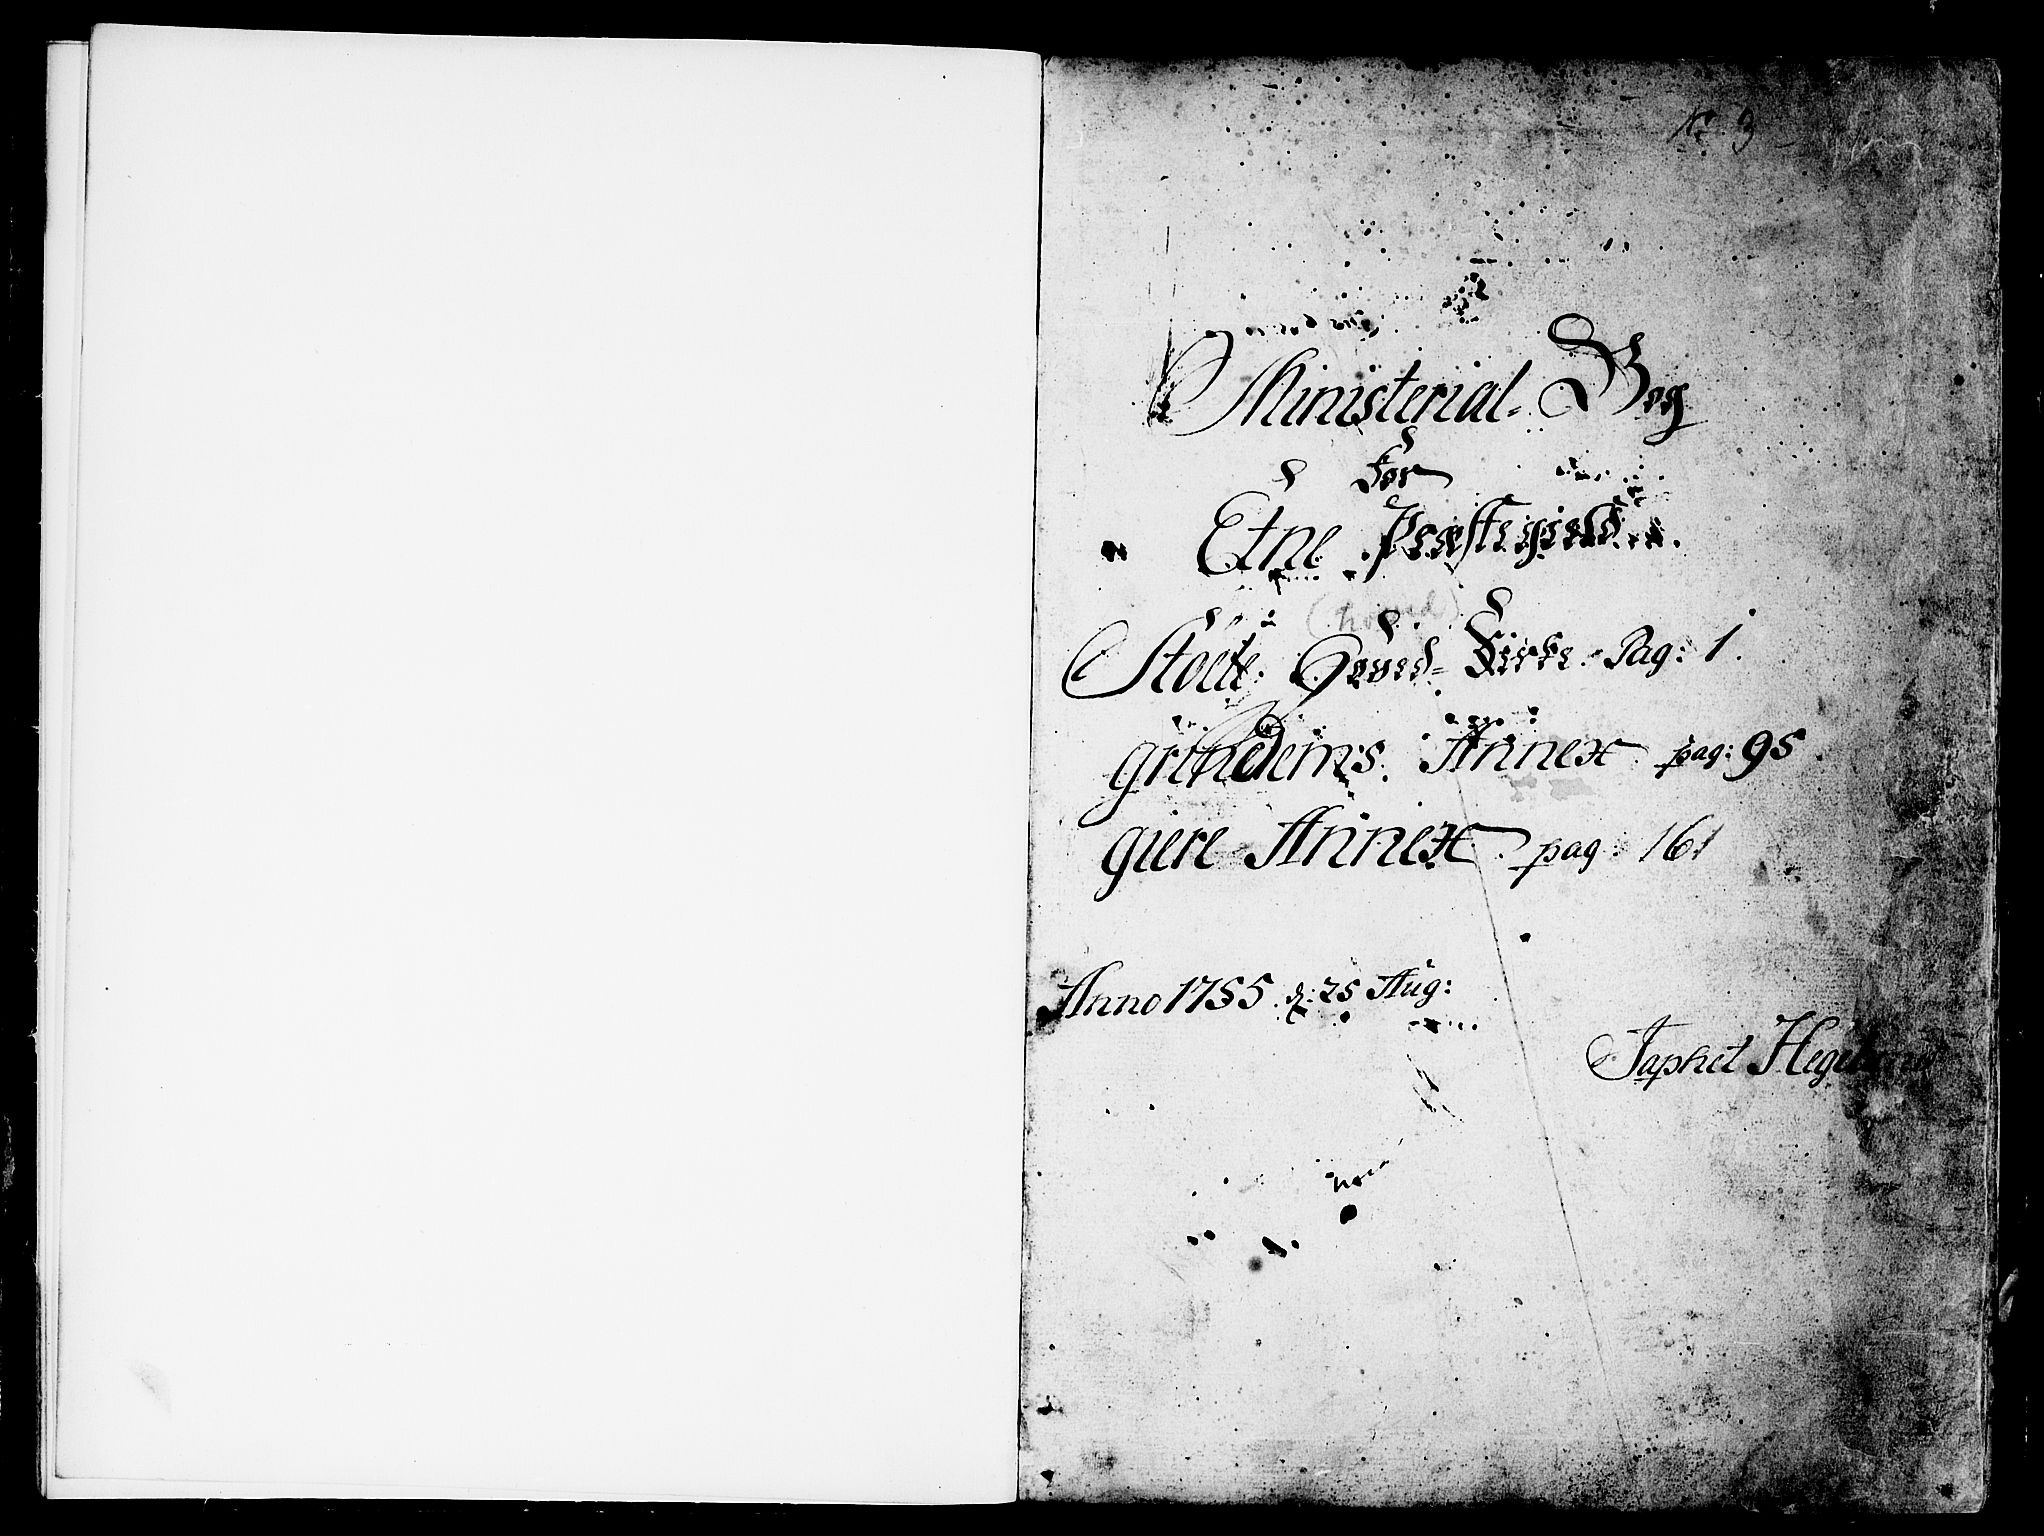 No 3
Ministerial- Bog
for
Etne Præstegield.
(hoved)
Stoele Hoved- Kirke. Pag: 1.
Grindems Annex pag: 95
giere Annex pag: 161
Anno 1755 d: 25 Aug:
Japhet Hegelund